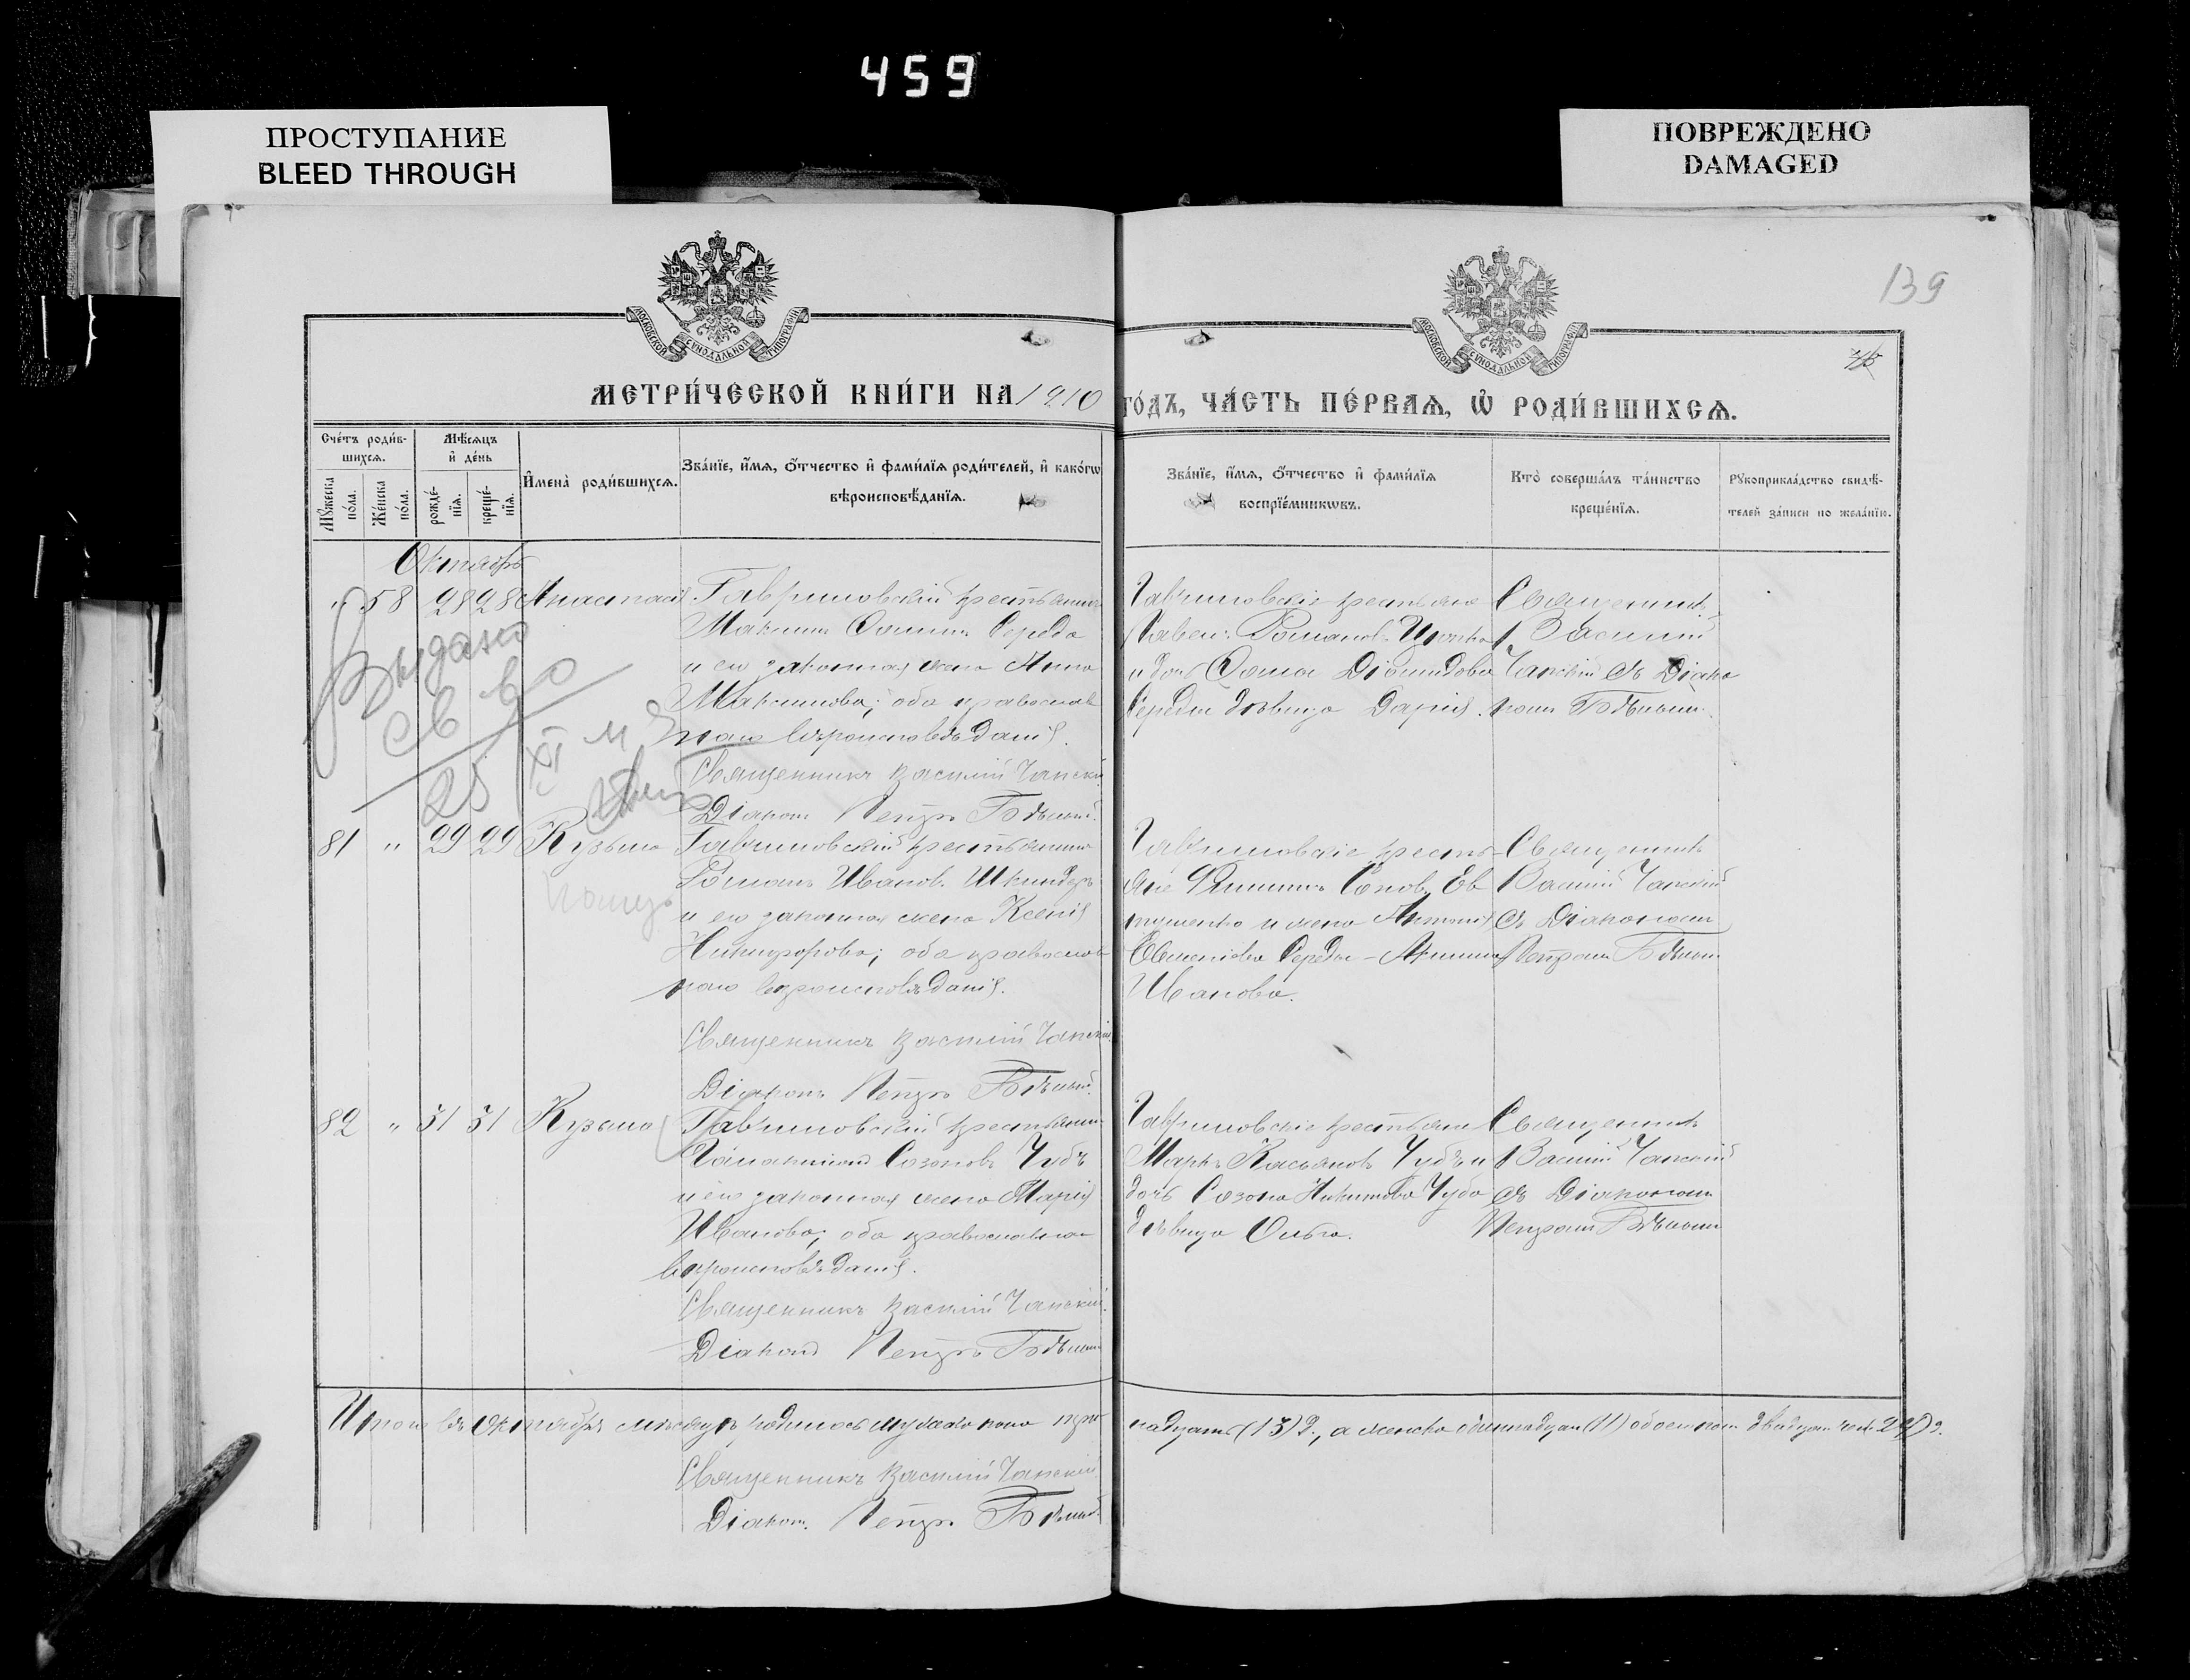 459
ПРОСТУПАНИЕ
BLEED THROUGH
ПОВРЕЖДЕНО
DAMAGED
139
МОСКОВСКОЙ СѴНОДАЛЬНОЙ ТИПОГРАФІИ
МОСКОВСКОЙ СѴНОДАЛЬНОЙ ТИПОГРАФІИ
МЕТРИ́ЧЕСКОЙ КНИ́ГИ НА 1910 ГО́ДЪ, ЧА́СТЬ ПЕ́РВАѦ, Ѽ РОДИ́ВШИХСѦ.
Сче́тъ роди́в-
шихсѧ.
Мѣ́сѧцъ
и҆ де́нь
Мꙋ́жеска по́ла.
Же́нска по́ла.
рожде́-
нїѧ.
креще́-
нїѧ.
И҆мена̀ роди́вшихсѧ.
Зва́нїе, и҆́мѧ, ѻ҆́тчество и҆ фами́лїѧ роди́телей, и҆ како́гѡ
вѣроисповѣ́данїѧ.
Зва́нїе, и҆́мѧ, ѻ҆́тчество и҆ фами́лїѧ
воспрїе́мникѡвъ.
Кто̀ соверша́лъ та́инство
креще́нїѧ.
Рꙋкоприкла́дство свидѣ́-
телей за́писи по жела́нїю.
Октябрь
" 58 28 28 Анастасія
Гавриловскій крестьянинъ
Максимъ Ѳоминъ Середа
и его законная жена Анна
Максимова; оба православ
наго вѣроисповѣданія.
Священникъ Василій Чанскій
Діаконъ Петръ Бѣлый.
Гавриловскіе крестьяне
Павелъ Романовъ
и дочь Ѳомы Діомидова
Середы дѣвица Дарія.
Священникъ
Василій
Чанскій съ Діако
номъ Бѣлымъ.
Выдано
св во
25 XI
81 " 29 29 Кузьма
Гавриловскій крестьянинъ
Романъ Иванов. Шкиндеръ
и его законная жена Ксенія
Никифорова; оба православ
наго вѣроисповѣданія.
Священникъ Василій Чанскій
Діаконъ Петръ Бѣлый.
Гавриловскіе кресть-
яне Филиппъ Ев
тушенко и жена Антонія
Евменіева Середы -
Иванова.
Священникъ
Василій Чанскій
съ Діакономъ
Петромъ Бѣлымъ
82 " 31 31 Кузьма
Гавриловскій крестьянинъ
Созоновъ Чубъ
и его законная жена Марія
Иванова; оба православнаго
вѣроисповѣданія.
Священникъ Василій Чанскій.
Діаконъ Петръ Бѣлый
Гавриловскіе крестьяне
Маркъ Касьяновъ Чубъ и
дочь Созона Никитова Чуба
дѣвица Ольга.
Священникъ
Василій Чанскій
съ Діакономъ
Петромъ Бѣлымъ
Итого въ Октябрѣ мѣсяцѣ родилось мужеска пола три-
надцать (13) д., а женска одиннадцат (11) обоего пол. двадцат четы 24) д.
Священникъ Василій Чанскій.
Діаконъ Петръ Бѣлый